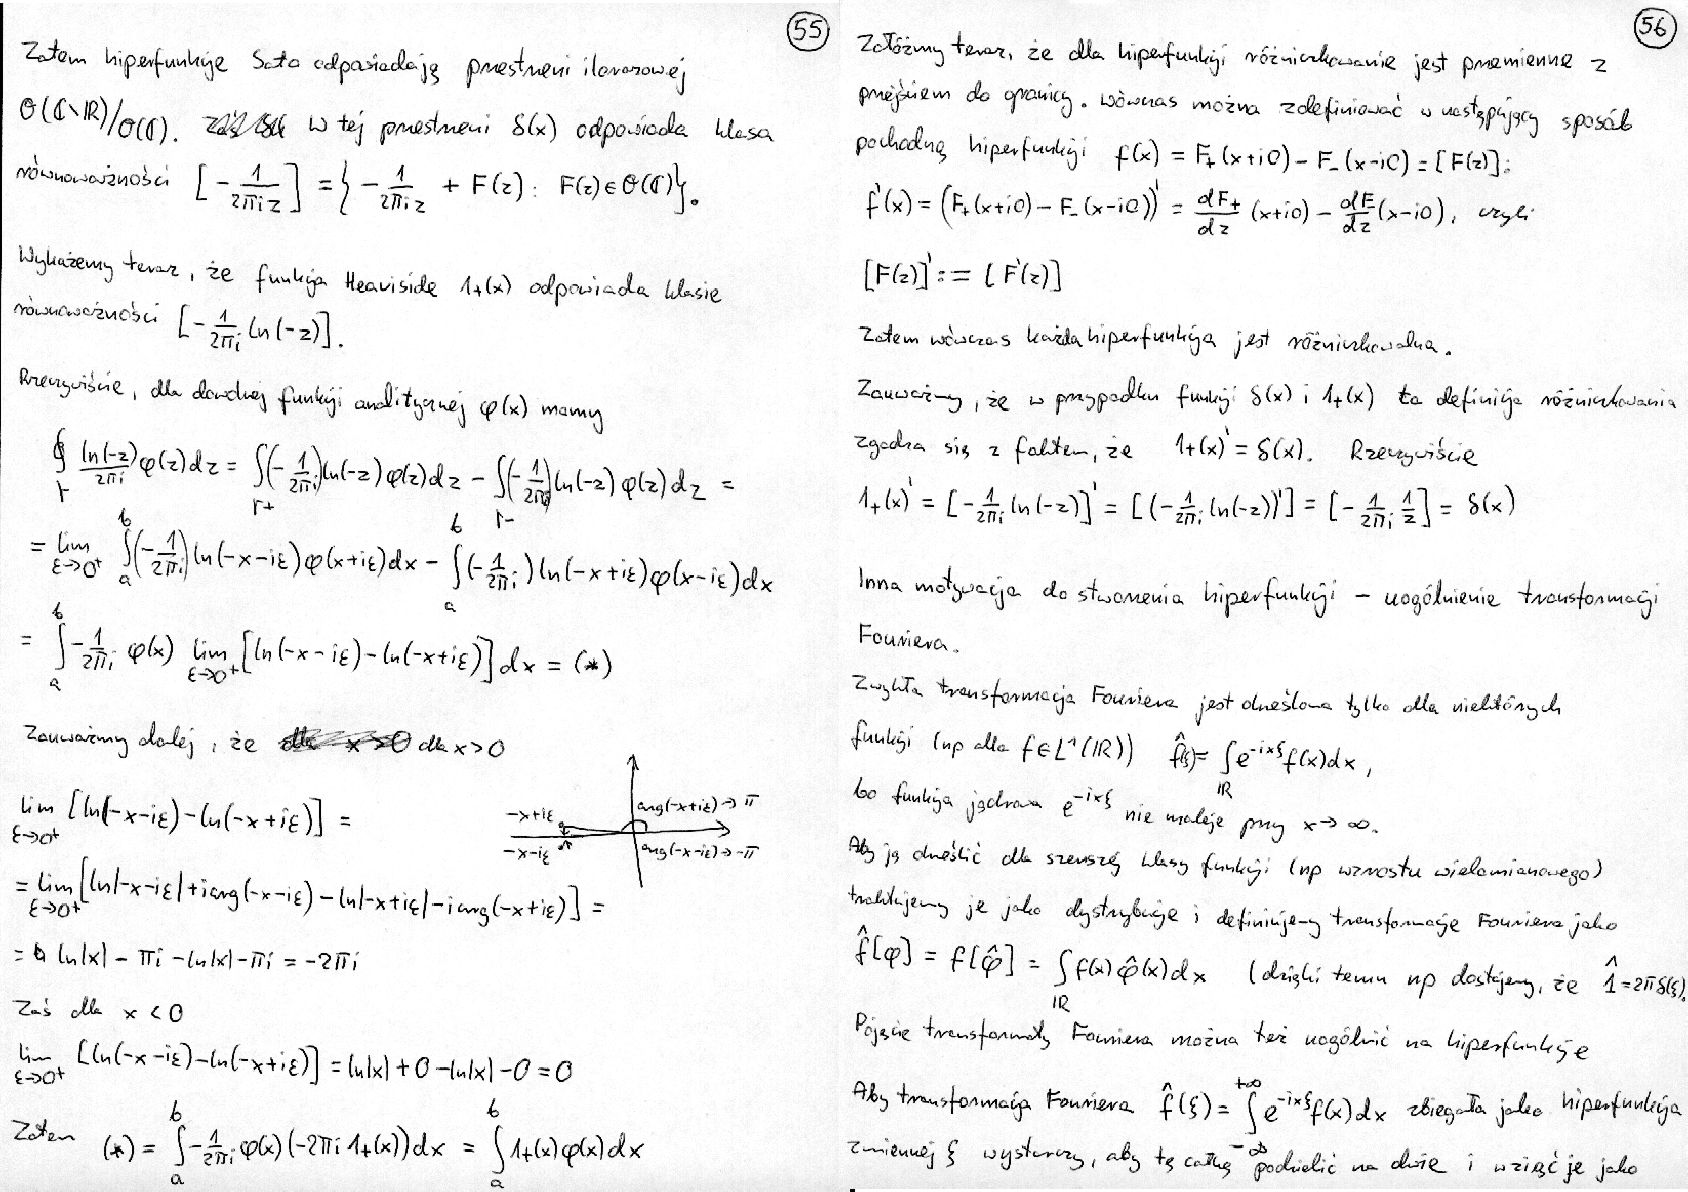 55
Zatem hiperfunkcje Sato odpowiadają przestrzeni ilorazowej
𝒪(ℂ∖ℝ)/𝒪(ℂ). W tej przestrzeni δ(x) odpowiada klasa
równoważności [-1/(2πiz)] = {-1/(2πiz) + F(z): F(z)∈𝒪(ℂ)}.
Wykażemy teraz, że funkcja Heaviside 1₊(x) odpowiada klasie
równoważności [-1/(2πi) ln(-z)].
Rzeczywiście, dla dowolnej funkcji analitycznej φ(x) mamy
∮_Γ ln(-z)/(2πi) φ(z)dz = ∫_Γ+ (-1/(2πi)) ln(-z) φ(z)dz - ∫_Γ- (-1/(2πi)) ln(-z) φ(z)dz =
= lim_{ε→0⁺} ∫_a^b (-1/(2πi)) ln(-x-iε) φ(x+iε)dx - ∫_a^b (-1/(2πi)) ln(-x+iε) φ(x-iε)dx
= ∫_a^b -1/(2πi) φ(x) lim_{ε→0⁺} [ln(-x-iε) - ln(-x+iε)] dx = (*)
Zauważmy dalej, że dla x>0
lim_{ε→0⁺} [ln(-x-iε) - ln(-x+iε)] =
-x+iε
-x-iε
arg(-x+iε)→π
arg(-x-iε)→-π
= lim_{ε→0⁺} [ln|-x-iε| + i arg(-x-iε) - ln|-x+iε| - i arg(-x+iε)] =
= ln|x| - πi - ln|x| - πi = -2πi
Zaś dla x<0
lim_{ε→0⁺} [ln(-x-iε) - ln(-x+iε)] = ln|x| + 0 - ln|x| - 0 = 0
Zatem (*) = ∫_a^b -1/(2πi) φ(x) (-2πi 1₊(x))dx = ∫_a^b 1₊(x)φ(x)dx
56
Załóżmy teraz, że dla hiperfunkcji różniczkowanie jest przemienne z
przejściem do granicy. Wówczas można zdefiniować w następujący sposób
pochodną hiperfunkcji f(x) = F₊(x+i0) - F₋(x-i0) = [F(z)]:
f'(x) = (F₊(x+i0) - F₋(x-i0))' = dF₊/dz (x+i0) - dF₋/dz (x-i0), czyli
[F(z)]' := [F'(z)]
Zatem wówczas każda hiperfunkcja jest różniczkowalna.
Zauważmy, że w przypadku funkcji δ(x) i 1₊(x) ta definicja różniczkowania
zgadza się z faktem, że 1₊(x)' = δ(x). Rzeczywiście
1₊(x)' = [-1/(2πi) ln(-z)]' = [(-1/(2πi) ln(-z))'] = [-1/(2πi) 1/z] = δ(x)
Inna motywacja do stworzenia hiperfunkcji – uogólnienie transformacji
Fouriera.
Zwykła transformacja Fouriera jest określona tylko dla niektórych
funkcji (np dla f∈L¹(ℝ)) f̂(ξ) = ∫_ℝ e^{-ixξ} f(x)dx,
bo funkcja jądrowa e^{-ixξ} nie maleje przy x→∞.
Aby ją określić dla szerszej klasy funkcji (np wzrostu wielomianowego)
traktujemy je jako dystrybucje i definiujemy transformację Fouriera jako
f̂[φ] = f[φ̂] = ∫_ℝ f(x) φ̂(x)dx (dzięki temu np dostajemy, że 1̂ = 2πδ(ξ).
Pojęcie transformaty Fouriera można też uogólnić na hiperfunkcje
Aby transformacja Fouriera f̂(ξ) = ∫_{-∞}^{+∞} e^{-ixξ} f(x)dx zbiegała jako hiperfunkcja
zmiennej ξ wystarczy, aby tę całkę podzielić na dwie i wziąć je jako